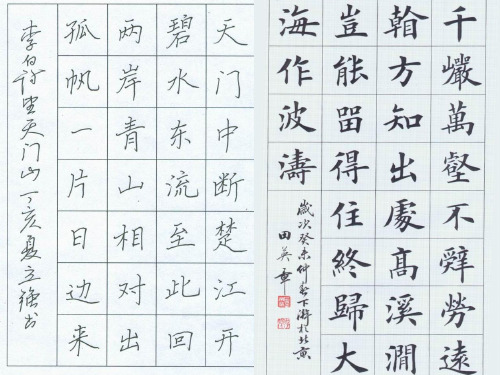 天门中断楚江开
碧水东流至此回
两岸青山相对出
孤帆一片日边来
李白诗望天门山丁亥夏立强书
千巖萬壑不辭勞遠
看方知出處高溪澗
豈能留得住終歸大
海作波濤
歲次癸未仲春下澣於北京
田英章